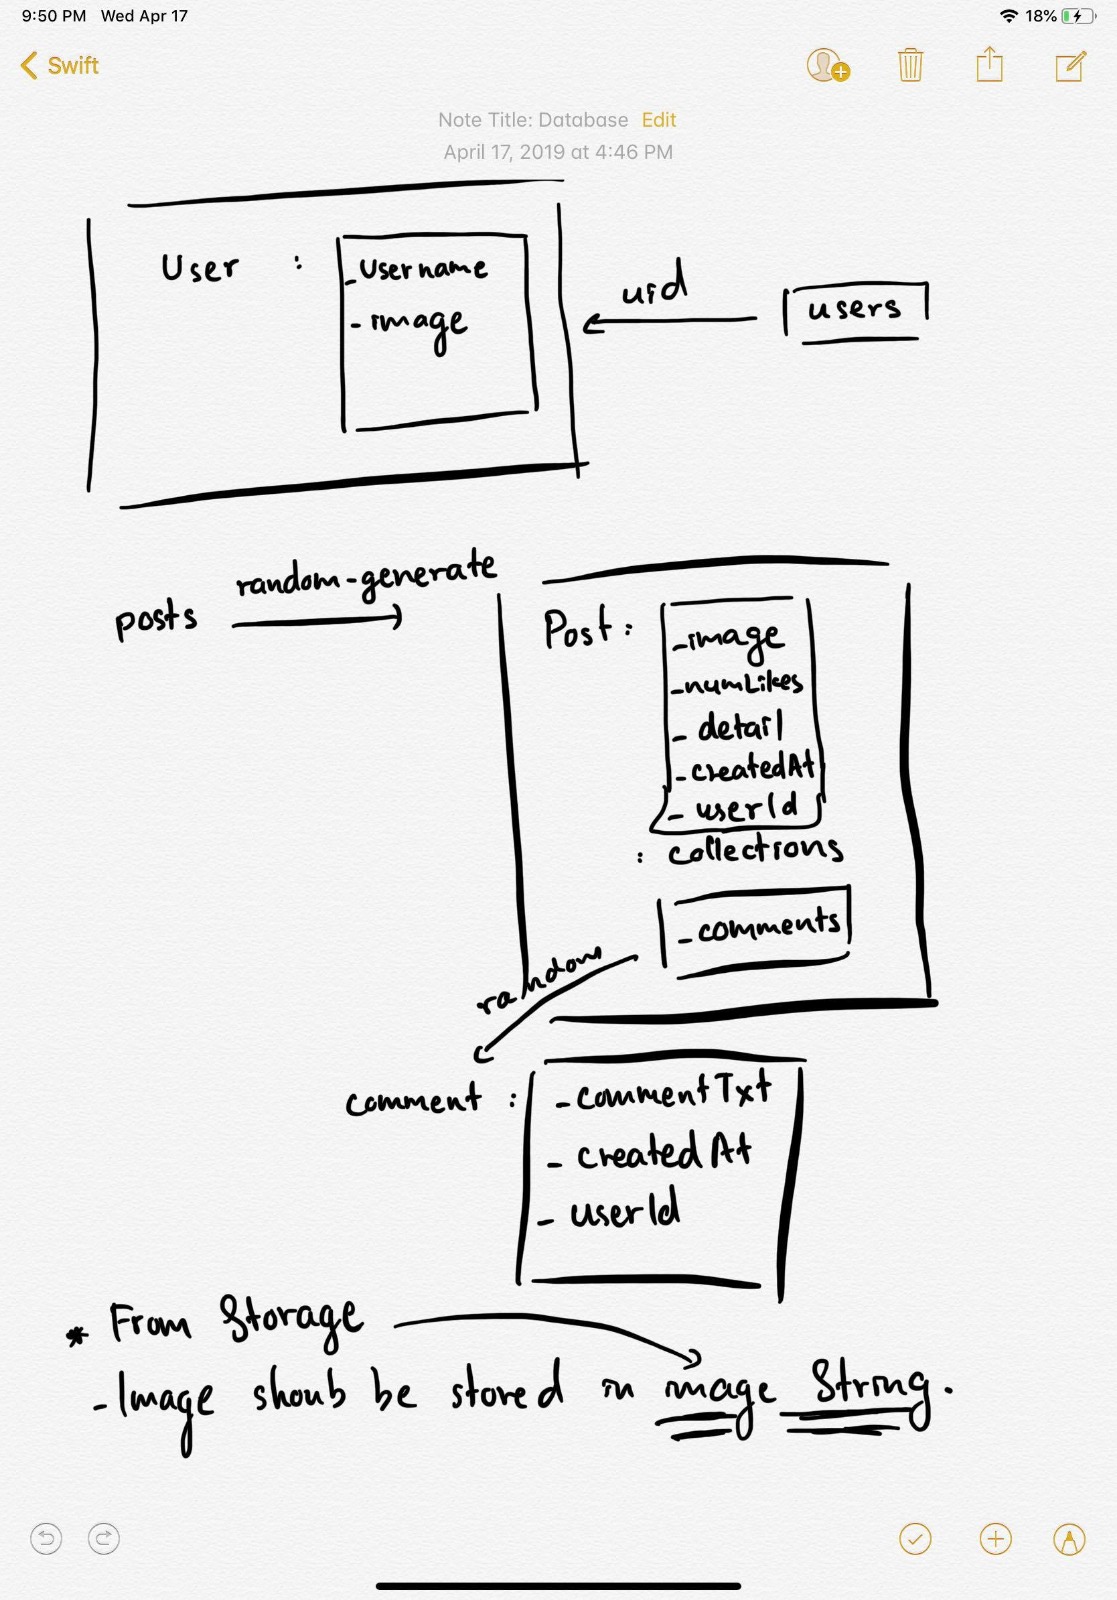 9:50 PM Wed Apr 17
18%
Swift
Note Title: Database Edit
April 17, 2019 at 4:46 PM
User :
- Username
- image
uid
users
posts
random-generate
Post :
- image
- numLikes
- detail
- createdAt
- userId
: collections
- comments
random
comment :
- commentTxt
- createdAt
- userId
* From Storage
- Image shoub be stored in image String.